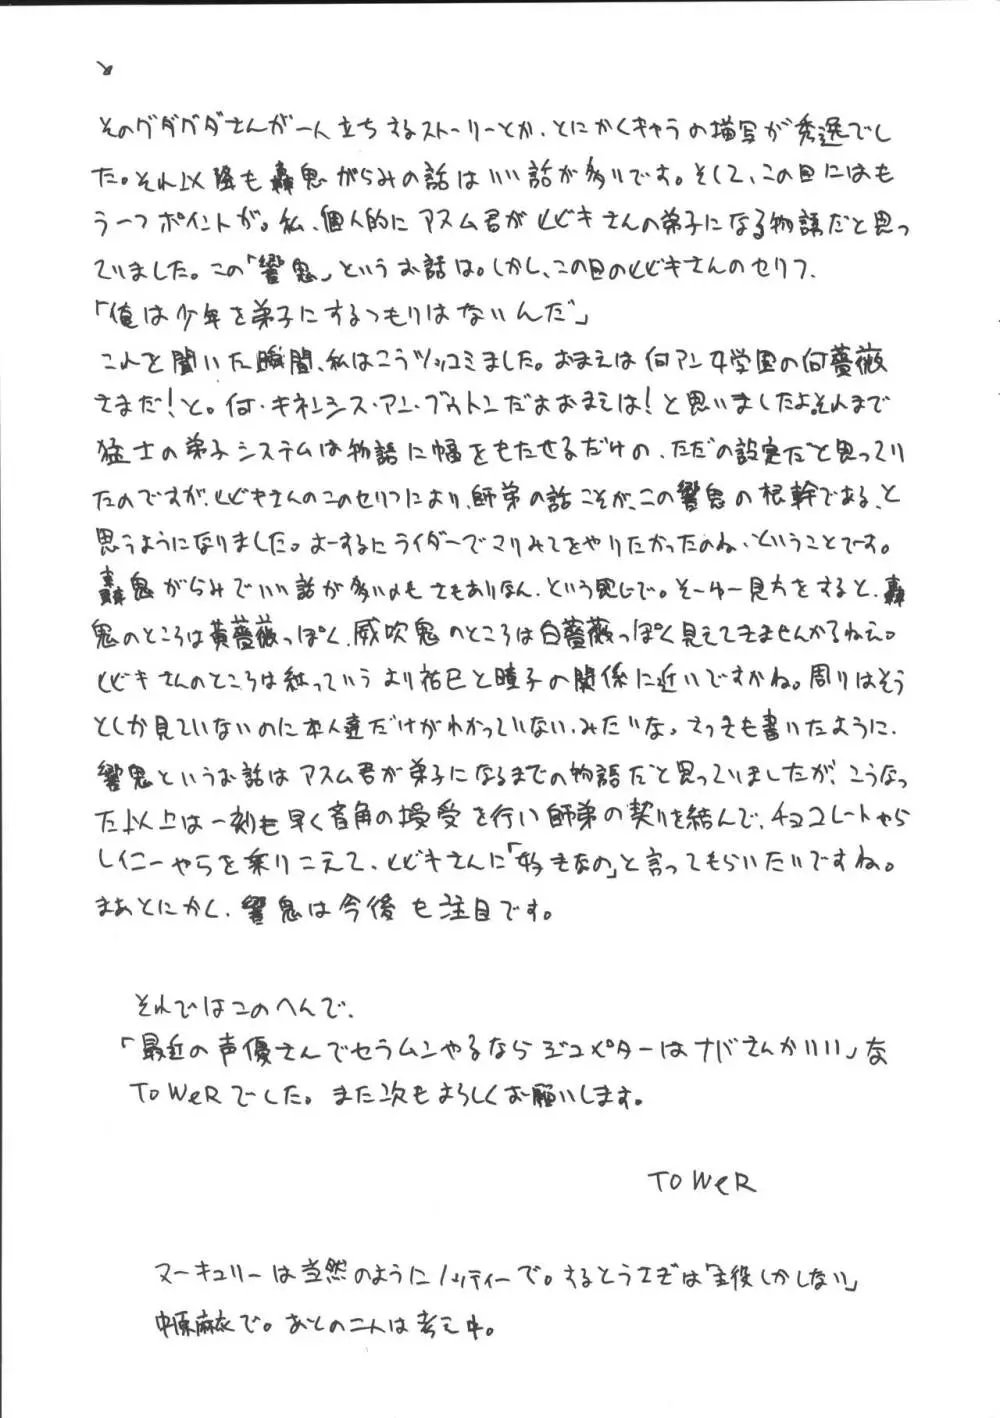 そのグダグダさんが一人立ちするストーリーとか、とにかくキャラの描写が秀逸でし
た。それ以降も轟鬼がらみの話はいい話が多いです。そして、この回にはも
う一つポイントが。私、個人的にアスム君がヒビキさんの弟子になる物語だと思っ
ていました。この「響鬼」というお話は。しかし、この回のヒビキさんのセリフ、
「俺は少年を弟子にするつもりはないんだ」
これを聞いた瞬間、私はこうツッコミました。おまえは何アン女学園の何薔薇
さまだ!と。何・キネンシス・アン・ブゥトンだよおまえは!と思いましたよ。それまで
猛士の弟子システムは物語に幅をもたせるだけの、ただの設定だと思ってい
たのですが、ヒビキさんのこのセリフにより、師弟の話こそが、この響鬼の根幹である、と
思うようになりました。よーするにライダーでマリみてをやりたかったのね、ということです。
轟鬼がらみでいい話が多いのもさもありなん、という感じで。そーゆー見方をすると、轟
鬼のところは黄薔薇っぽく、威吹鬼のところは白薔薇っぽく見えてきませんかねえ。
ヒビキさんのところは紅っていうより祐巳と瞳子の関係に近いですかね。周りはそう
としか見ていないのに本人達だけがわかっていない、みたいな。さっきも書いたように、
響鬼というお話はアスム君が弟子になるまでの物語だと思っていましたが、こうなっ
た以上は一刻も早く音角の授受を行い師弟の契りを結んで、チョコレートやら
レイニーやらを乗りこえて、ヒビキさんに「弟子なの」と言ってもらいたいですね。
まあとにかく、響鬼は今後も注目です。
それではこのへんで、
「最近の声優さんでセラムンやるならジュピターはナバさんがいい」な
TOWeRでした。また次もよろしくお願いします。
TOWeR
マーキュリーは当然のようにノッティーで。するとうさぎは「主役しかしない」
中原麻衣で。あとの二人は考え中。